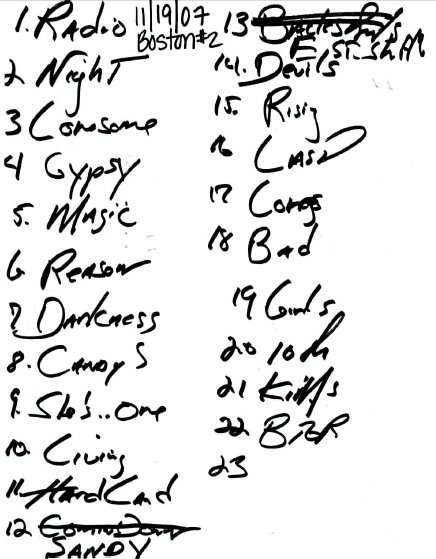 1. RADIO
11/19/07
Boston #2
2. Night
3 Lonesome
4 Gypsy
5. Magic
6. Reason
7. Darkness
8. CANDY'S
9. She's..one
10. Living
11. Hard Land
12
SANDY
13
E. St. Shuf
14. Devils
15. Rising
16 LAST
17 Long
18 Bad
19 Girls
20 10th
21 Kitty's
22 BTR
23